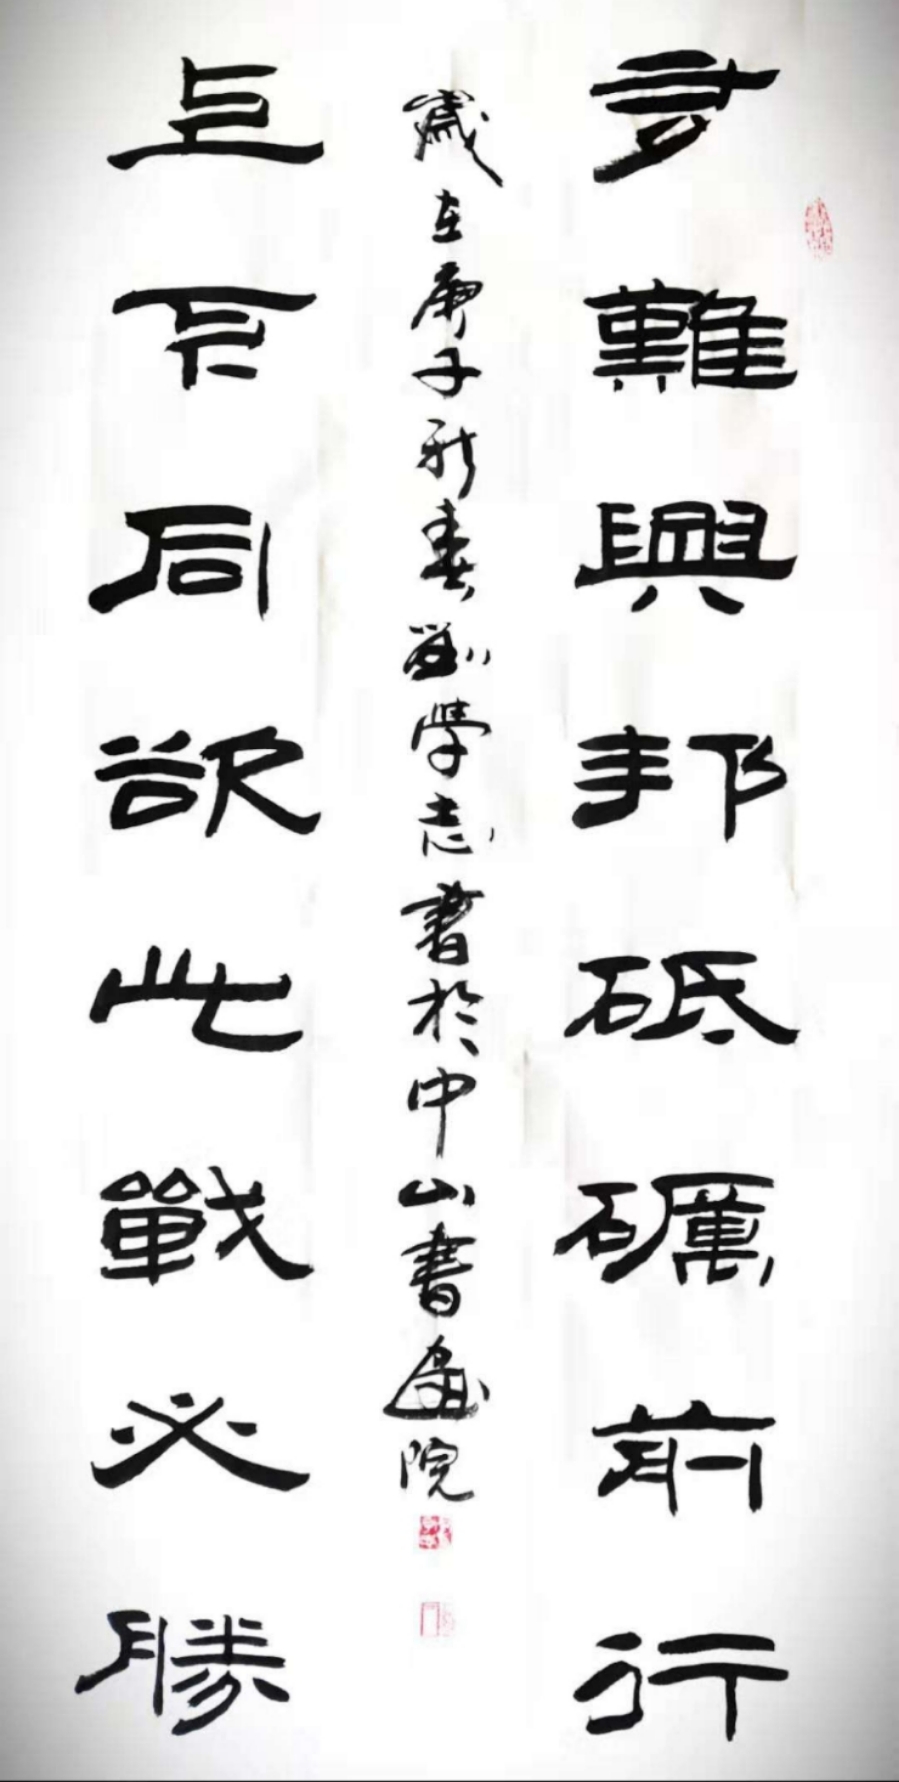 多難興邦砥礪前行
歲在庚子新春劉學志書於中山書畫院
上下同欲此戰必勝